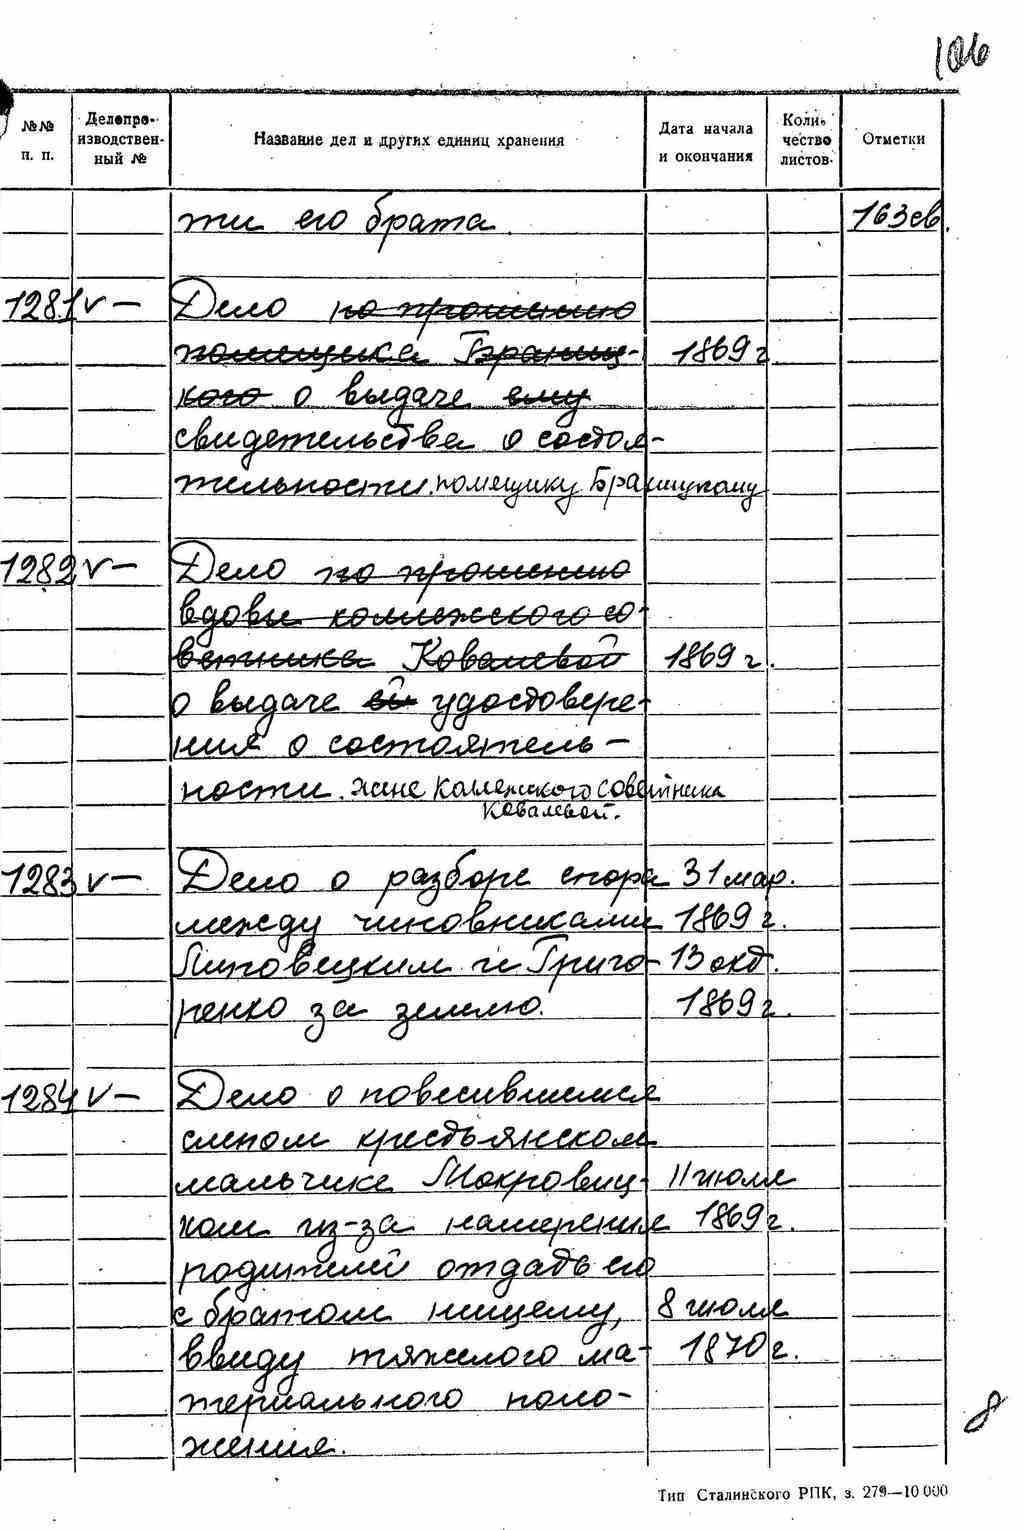 106
№№ п. п. Делопроизводственный № Название дел и других единиц хранения Дата начала и окончания Количество листов Отметки
ти его брата. 163 св.
1281 v — Дело по прошению
помещика Браниц- 1869 г.
кого о выдаче ему
свидетельства о состоя-
тельности. помещику Браницкому
1282 v — Дело по прошению
вдовы коллежского со-
ветника Ковалевой 1869 г.
о выдаче ей удостовере-
ния о состоятель-
ности. жене коллежского советника
Ковалевой.
1283 v — Дело о разборе спора 31 мар.
между чиновниками 1869 г.
Липовецким и Григо- 13 окт.
ренко за землю. 1869 г.
1284 v — Дело о повесившемся
слепом крестьянском
мальчике Мокровиц- 11 июля
ком из-за намерения 1869 г.
родителей отдать его
с братом нищему, 8 июля
ввиду тяжелого ма- 1870 г.
териального поло-
жения.
8
Тип Сталинского РПК, з. 279—10 000